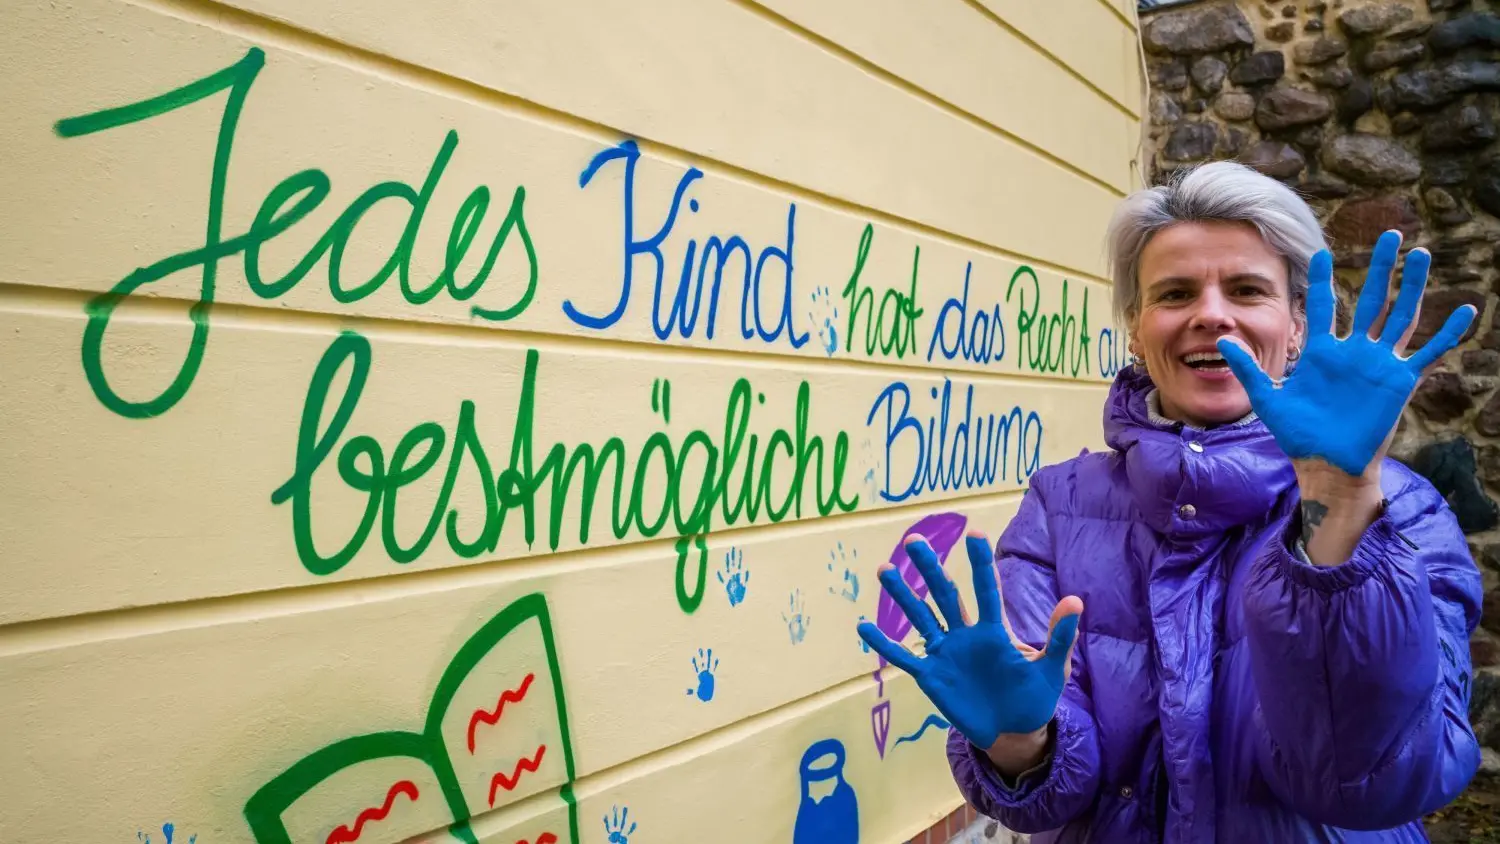 Jedes Kind hat das Recht au
bestmögliche Bildung